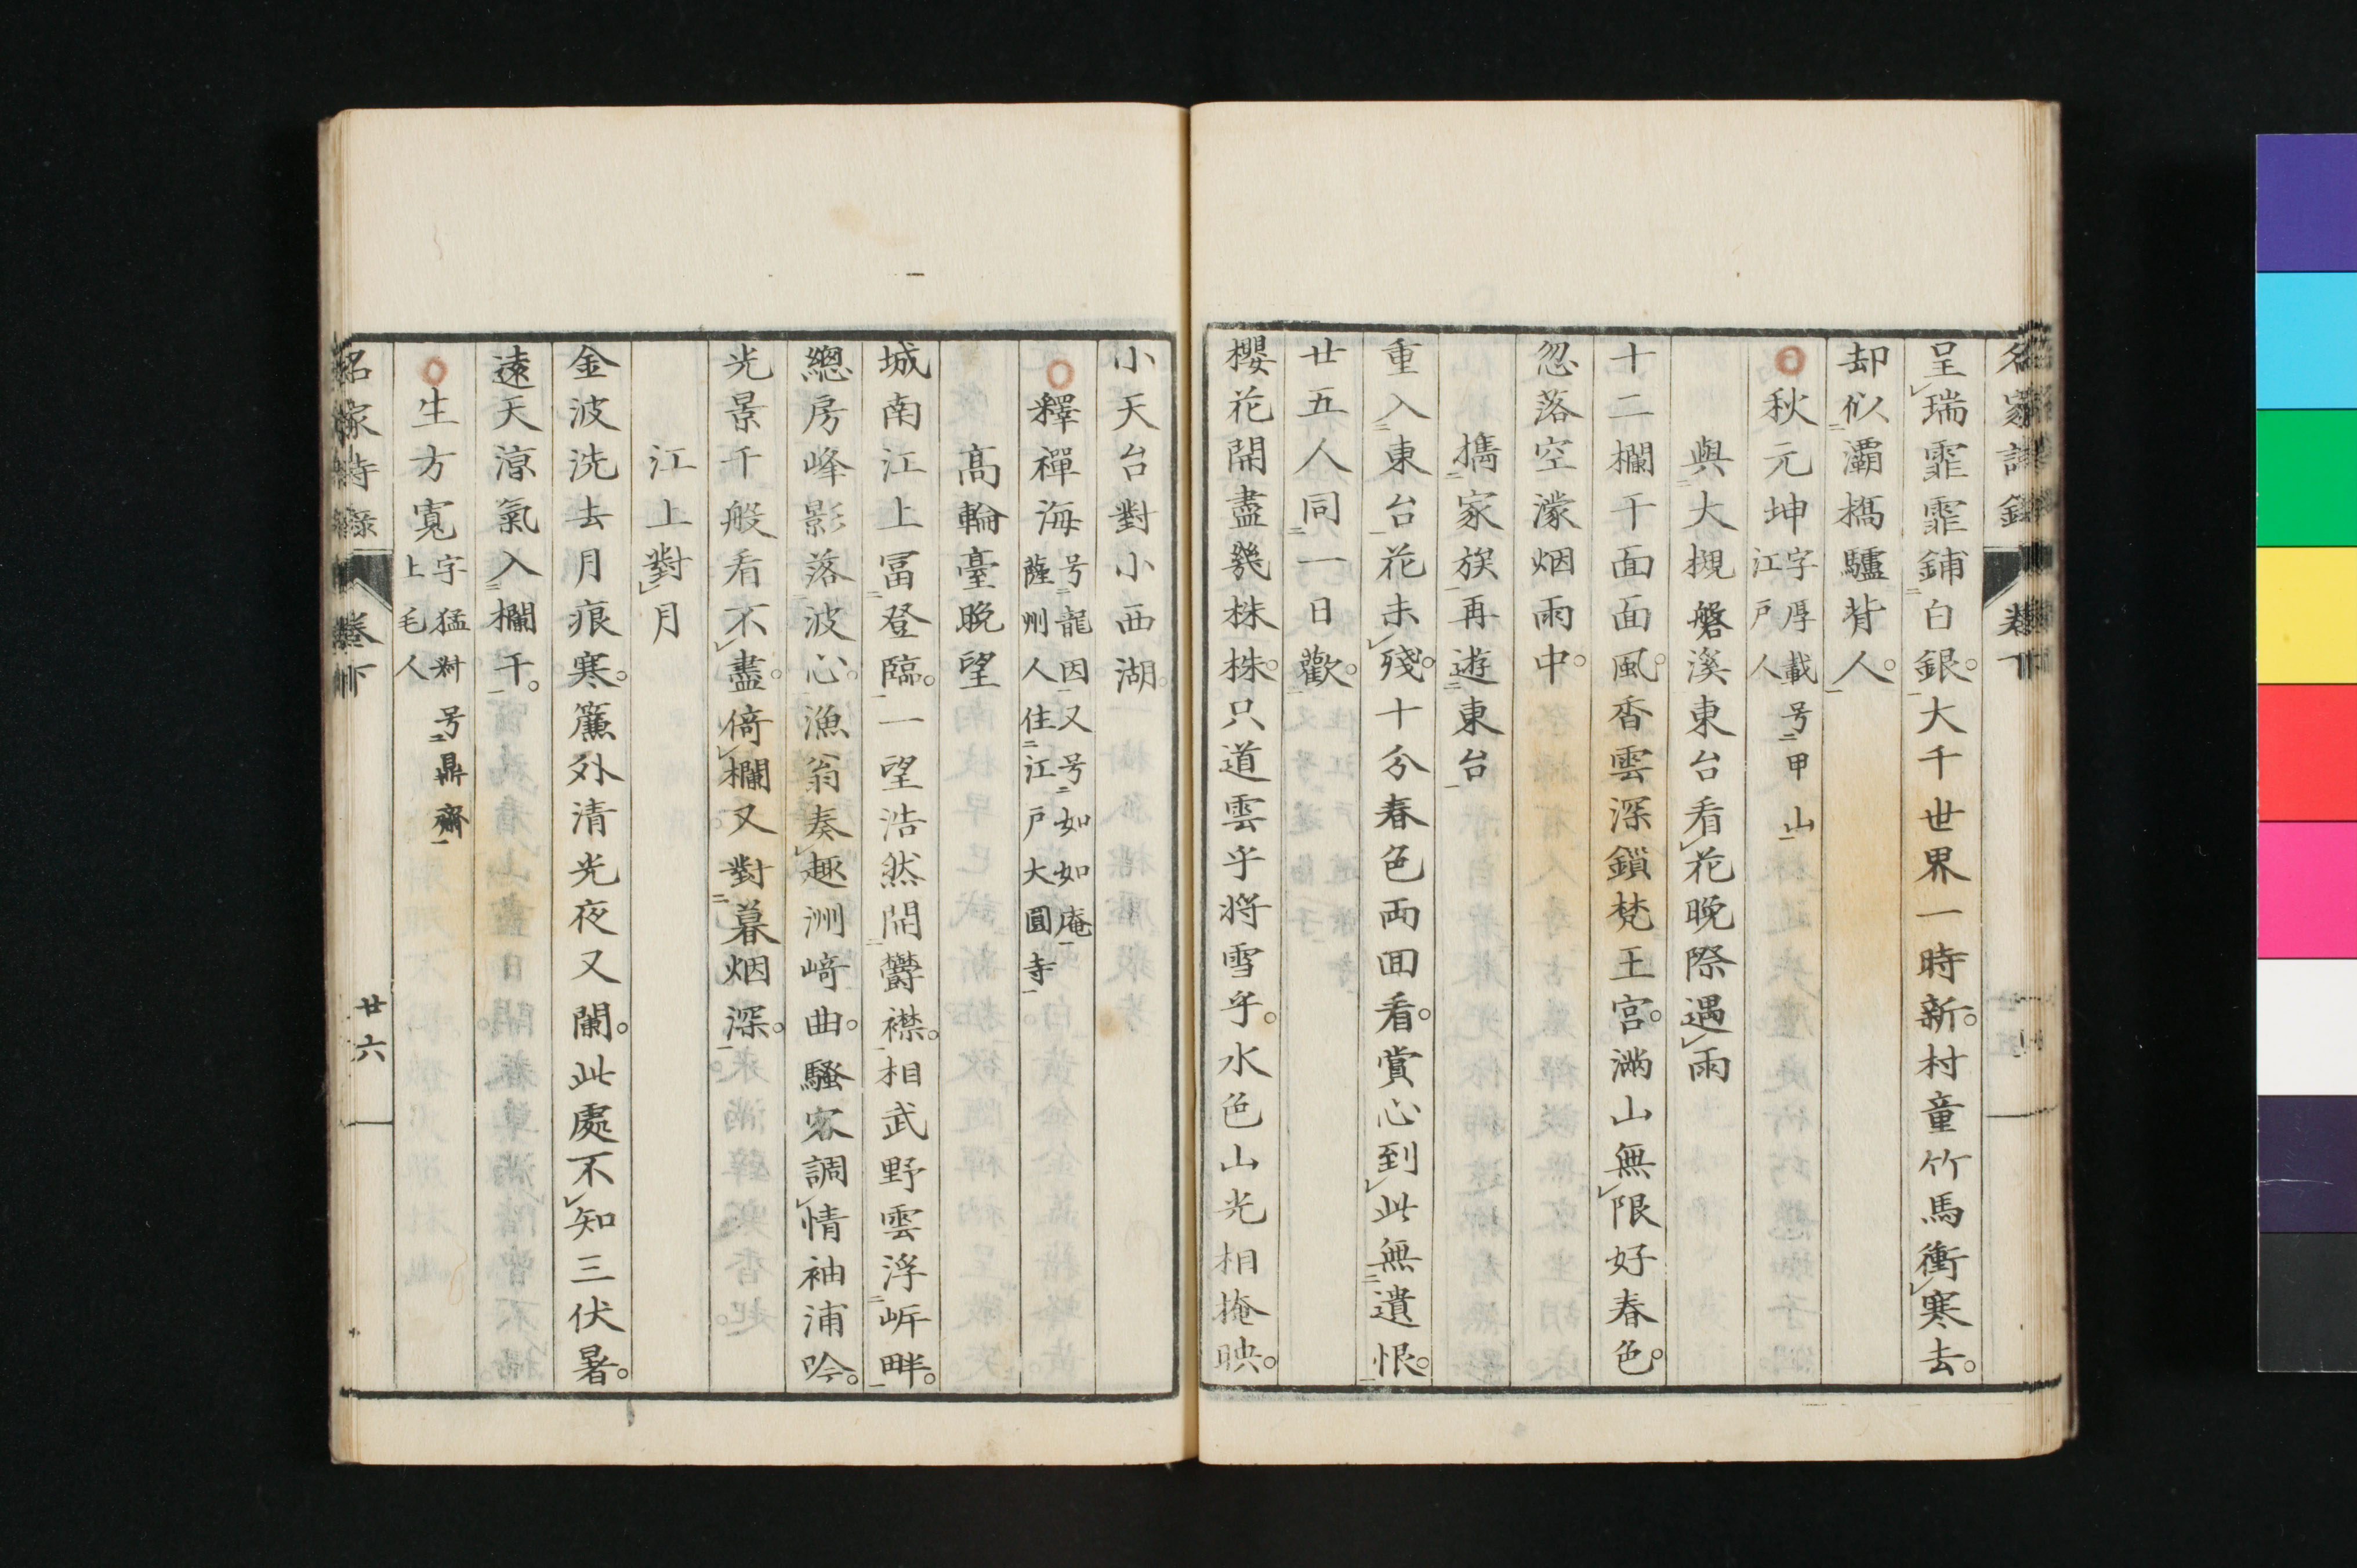 名家詩錄 卷下
呈瑞霏霏鋪白銀。大千世界一時新。村童竹馬衝寒去。
却似灞橋驢背人。
秋元坤 字厚載号甲山 江戸人
與大槻磐溪東台看花晚際遇雨
十二欄干面面風。香雲深鎖梵王宮。滿山無限好春色。
忽落空濛烟雨中。
攜家族再遊東台
重入東台花未殘。十分春色両回看。賞心到此無遺恨。
廿五人同一日歡。
櫻花開盡幾株株。只道雲乎將雪乎。水色山光相掩映。
小天台對小西湖。
釋禪海 号龍因又号如如庵 薩州人住江戸大圓寺
髙輪臺晚望
城南江上冨登臨。一望浩然開鬱襟。相武野雲浮岍畔。
總房峰影落波心。漁翁奏趣洲崎曲。騷客調情袖浦吟。
光景千般看不盡。倚欄又對暮烟深。
江上對月
金波洗去月痕寒。簾外清光夜又闌。此處不知三伏暑。
遠天涼氣入欄干。
生方寬 字猛對号鼎齋 上毛人
名家詩錄 卷下 廿六